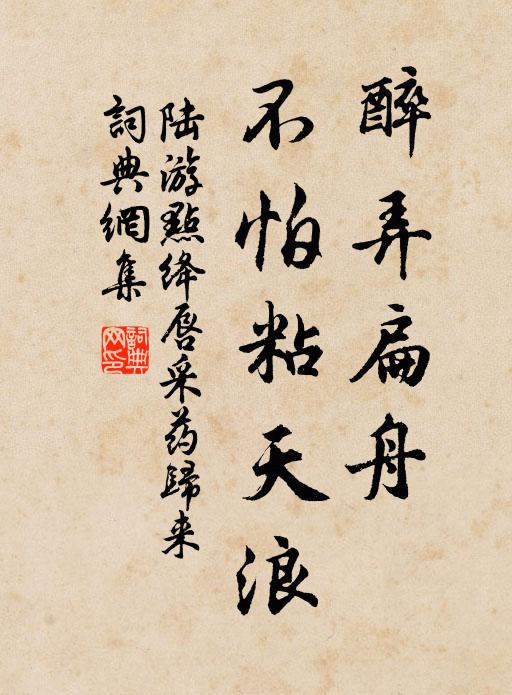 醉弄扁舟
不怕粘天浪
陆游點绛唇采药歸来
詞典網集
詞典
网印